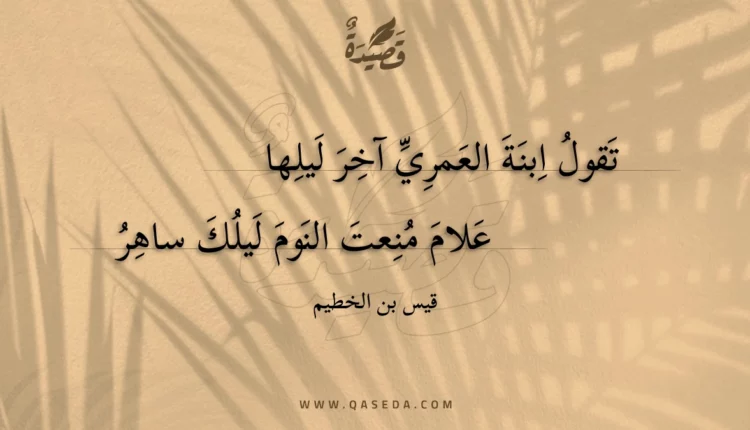 قَصِيْدَةٌ
تَقولُ اِبنَةَ العَمرِيِّ آخِرَ لَيلِها
عَلامَ مُنِعتَ النَومَ لَيلُكَ ساهِرُ
قيس بن الخطيم
WWW.QASEDA.COM